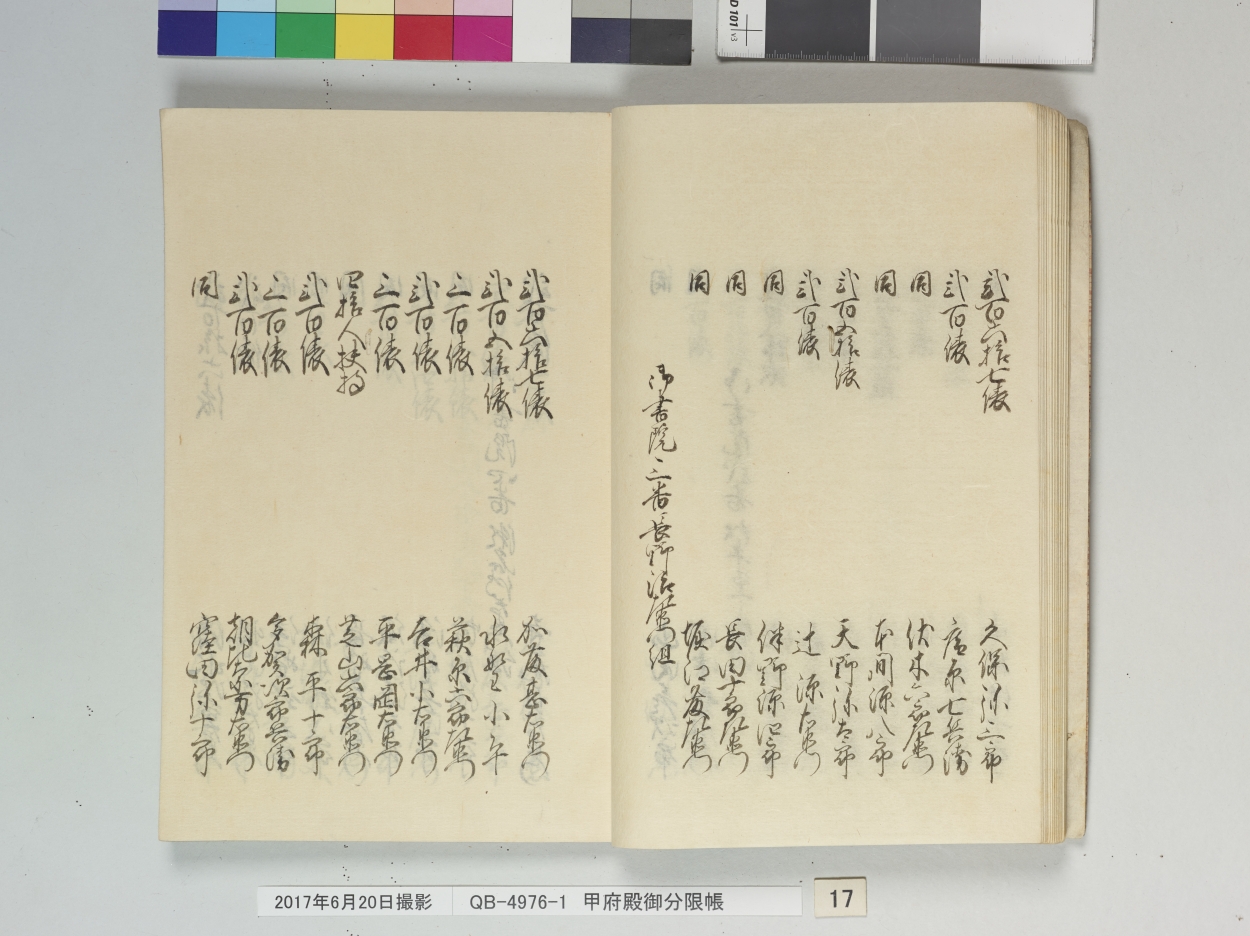 弐百六拾七俵 久保弥三郎
弐百俵 庄七兵衛
同 伏木六郎左衛門
同 本間源八郎
弐百五拾俵 天野弥太郎
弐百俵 辻源右衛門
同 伴野源四郎
同 長田十郎左衛門
同 堀江藤左衛門
御書院三番長野治左衛門組
弐百六拾七俵 加藤嘉右衛門
弐百五拾俵 小
三百俵 萩原六郎左衛門
弐百俵 吉井小右衛門
三百俵 平岡右衛門
四拾人扶持 芝山六郎右衛門
弐百俵 森平十郎
三百俵 多賀次郎兵衛
弐百俵 朝比奈万右衛門
同 窪田弥十郎
D 101 v3
2017年6月20日撮影 QB-4976-1 甲府殿御分限帳
17